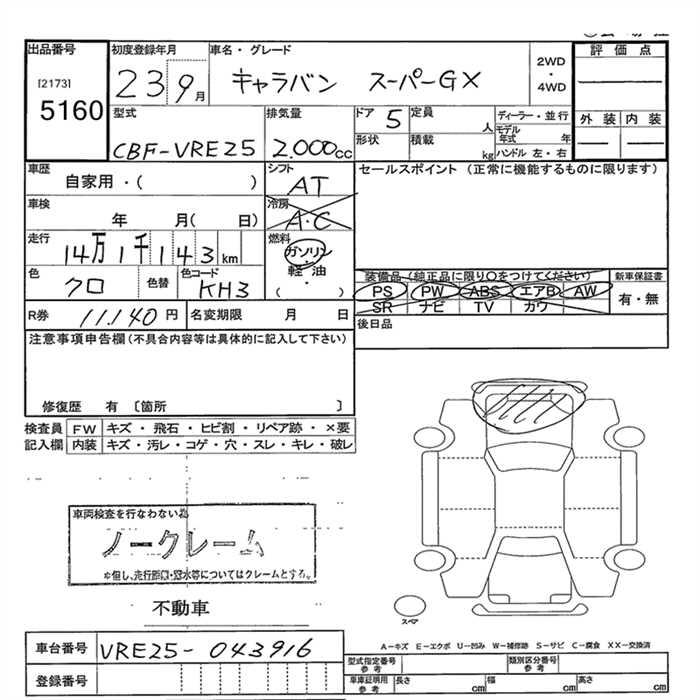 出品番号
[2173]
5160
初度登録年月
23 9月
車名・グレード
キャラバン スーパーGX
2WD
・
4WD
評価点
外装 内装
型式
CBF-VRE25
排気量
2.000cc
ドア 5
形状
定員 人
積載 kg
ディーラー・並行
モデル年式 年
ハンドル 左・右
車歴
自家用・( )
シフト
AT
セールスポイント (正常に機能するものに限ります)
車検
年 月( 日)
冷房
A・C
走行
14万1千143km
燃料
ガソリン
・
軽・油
・
( )
色
クロ
色替
色コード
KH3
装備品(純正品に限り○をつけてください)
PS PW ABS エアB AW
SR ナビ TV カワ
新車保証書
有・無
R券 11.140円
名変期限 月 日
後日品
注意事項申告欄(不具合内容等は具体的に記入して下さい)
修復歴 有 〔箇所 〕
検査員記入欄
FW キズ・飛石・ヒビ割・リペア跡・×要
内装 キズ・汚レ・コゲ・穴・スレ・キレ・破レ
車両検査を行なわない為
ノークレーム
※但し、走行距離・冠水等についてはクレームとする。
不動車
スペア
A−キズ E−エクボ U−凹み W−補修跡 S−サビ C−腐食 XX−交換済
車台番号 VRE25-043916
登録番号
型式指定番号 参考
類別区分番号 参考
車庫証明用 参考
長さ cm 幅 cm 高さ cm